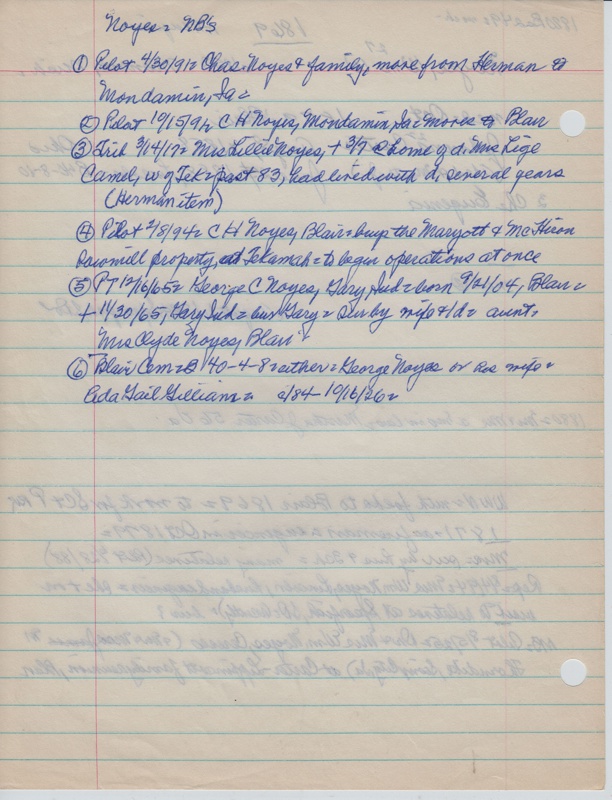 Noyes = NB's
① Pilot 4/30/91 = Chas. Noyes & family, move from Herman to
Mondamin, Ia =
② Pilot 10/15/91 = C H Noyes, Mondamin, Ia = moves to Blair
③ Trib 3/14/17 = Mrs Lillie Noyes, + 3/7 @ home of d, Mrs Lige
Camel, w of Tek = past 83, had lived with d, several years
(Herman item)
④ Pilot 2/8/94 = C H Noyes, Blair = buys the Maryott & McHiron
sawmill property, at Tekamah = to begin operations at once
⑤ PT 12/16/65 = George C Noyes, Gary, Ind = born 9/21/04, Blair =
+ 11/30/65, Gary Ind = bur Gary = surv by wife & 1d = aunt =
Mrs Clyde Noyes, Blair =
⑥ Blair Cem = 40-4-8 = either = George Noyes or his wife =
Ada Gail Gilliam = d/84 - 10/16/26 =